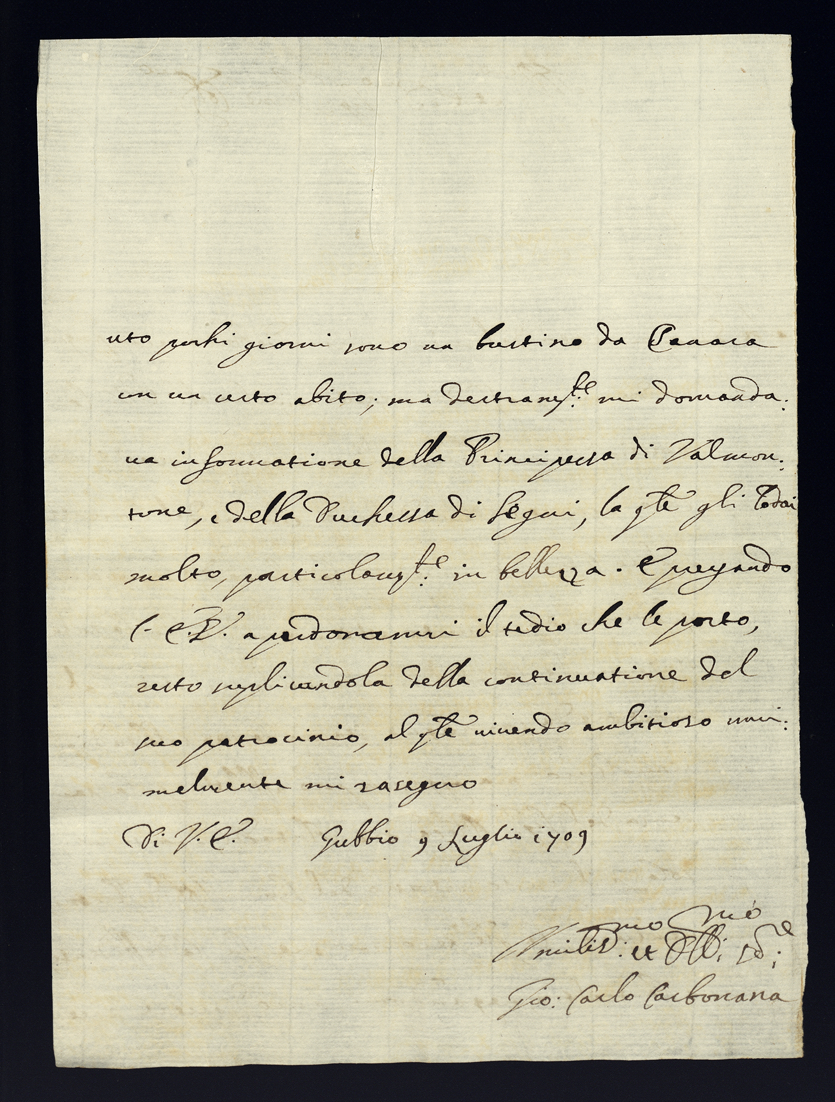 uto pochi giorni sono un bustino da Camara
con un certo abito; ma destramte. mi domanda:
ua informatione della Principessa di Valmon:
tone, e della Duchessa di Segni, la qle gli lodai
molto, particolarmte. in bellezza. E pregando
l'E.V. a perdonarmi il tedio che le porto,
resto suplicandola della continuatione del
suo patrocinio, al qle uiuendo ambitioso umi:
melmente mi rasegno
Di V.E. Gubbio 9 Luglio 1709
Umilis:mo et Obb:mo sre:
Gio: Carlo Carbonana